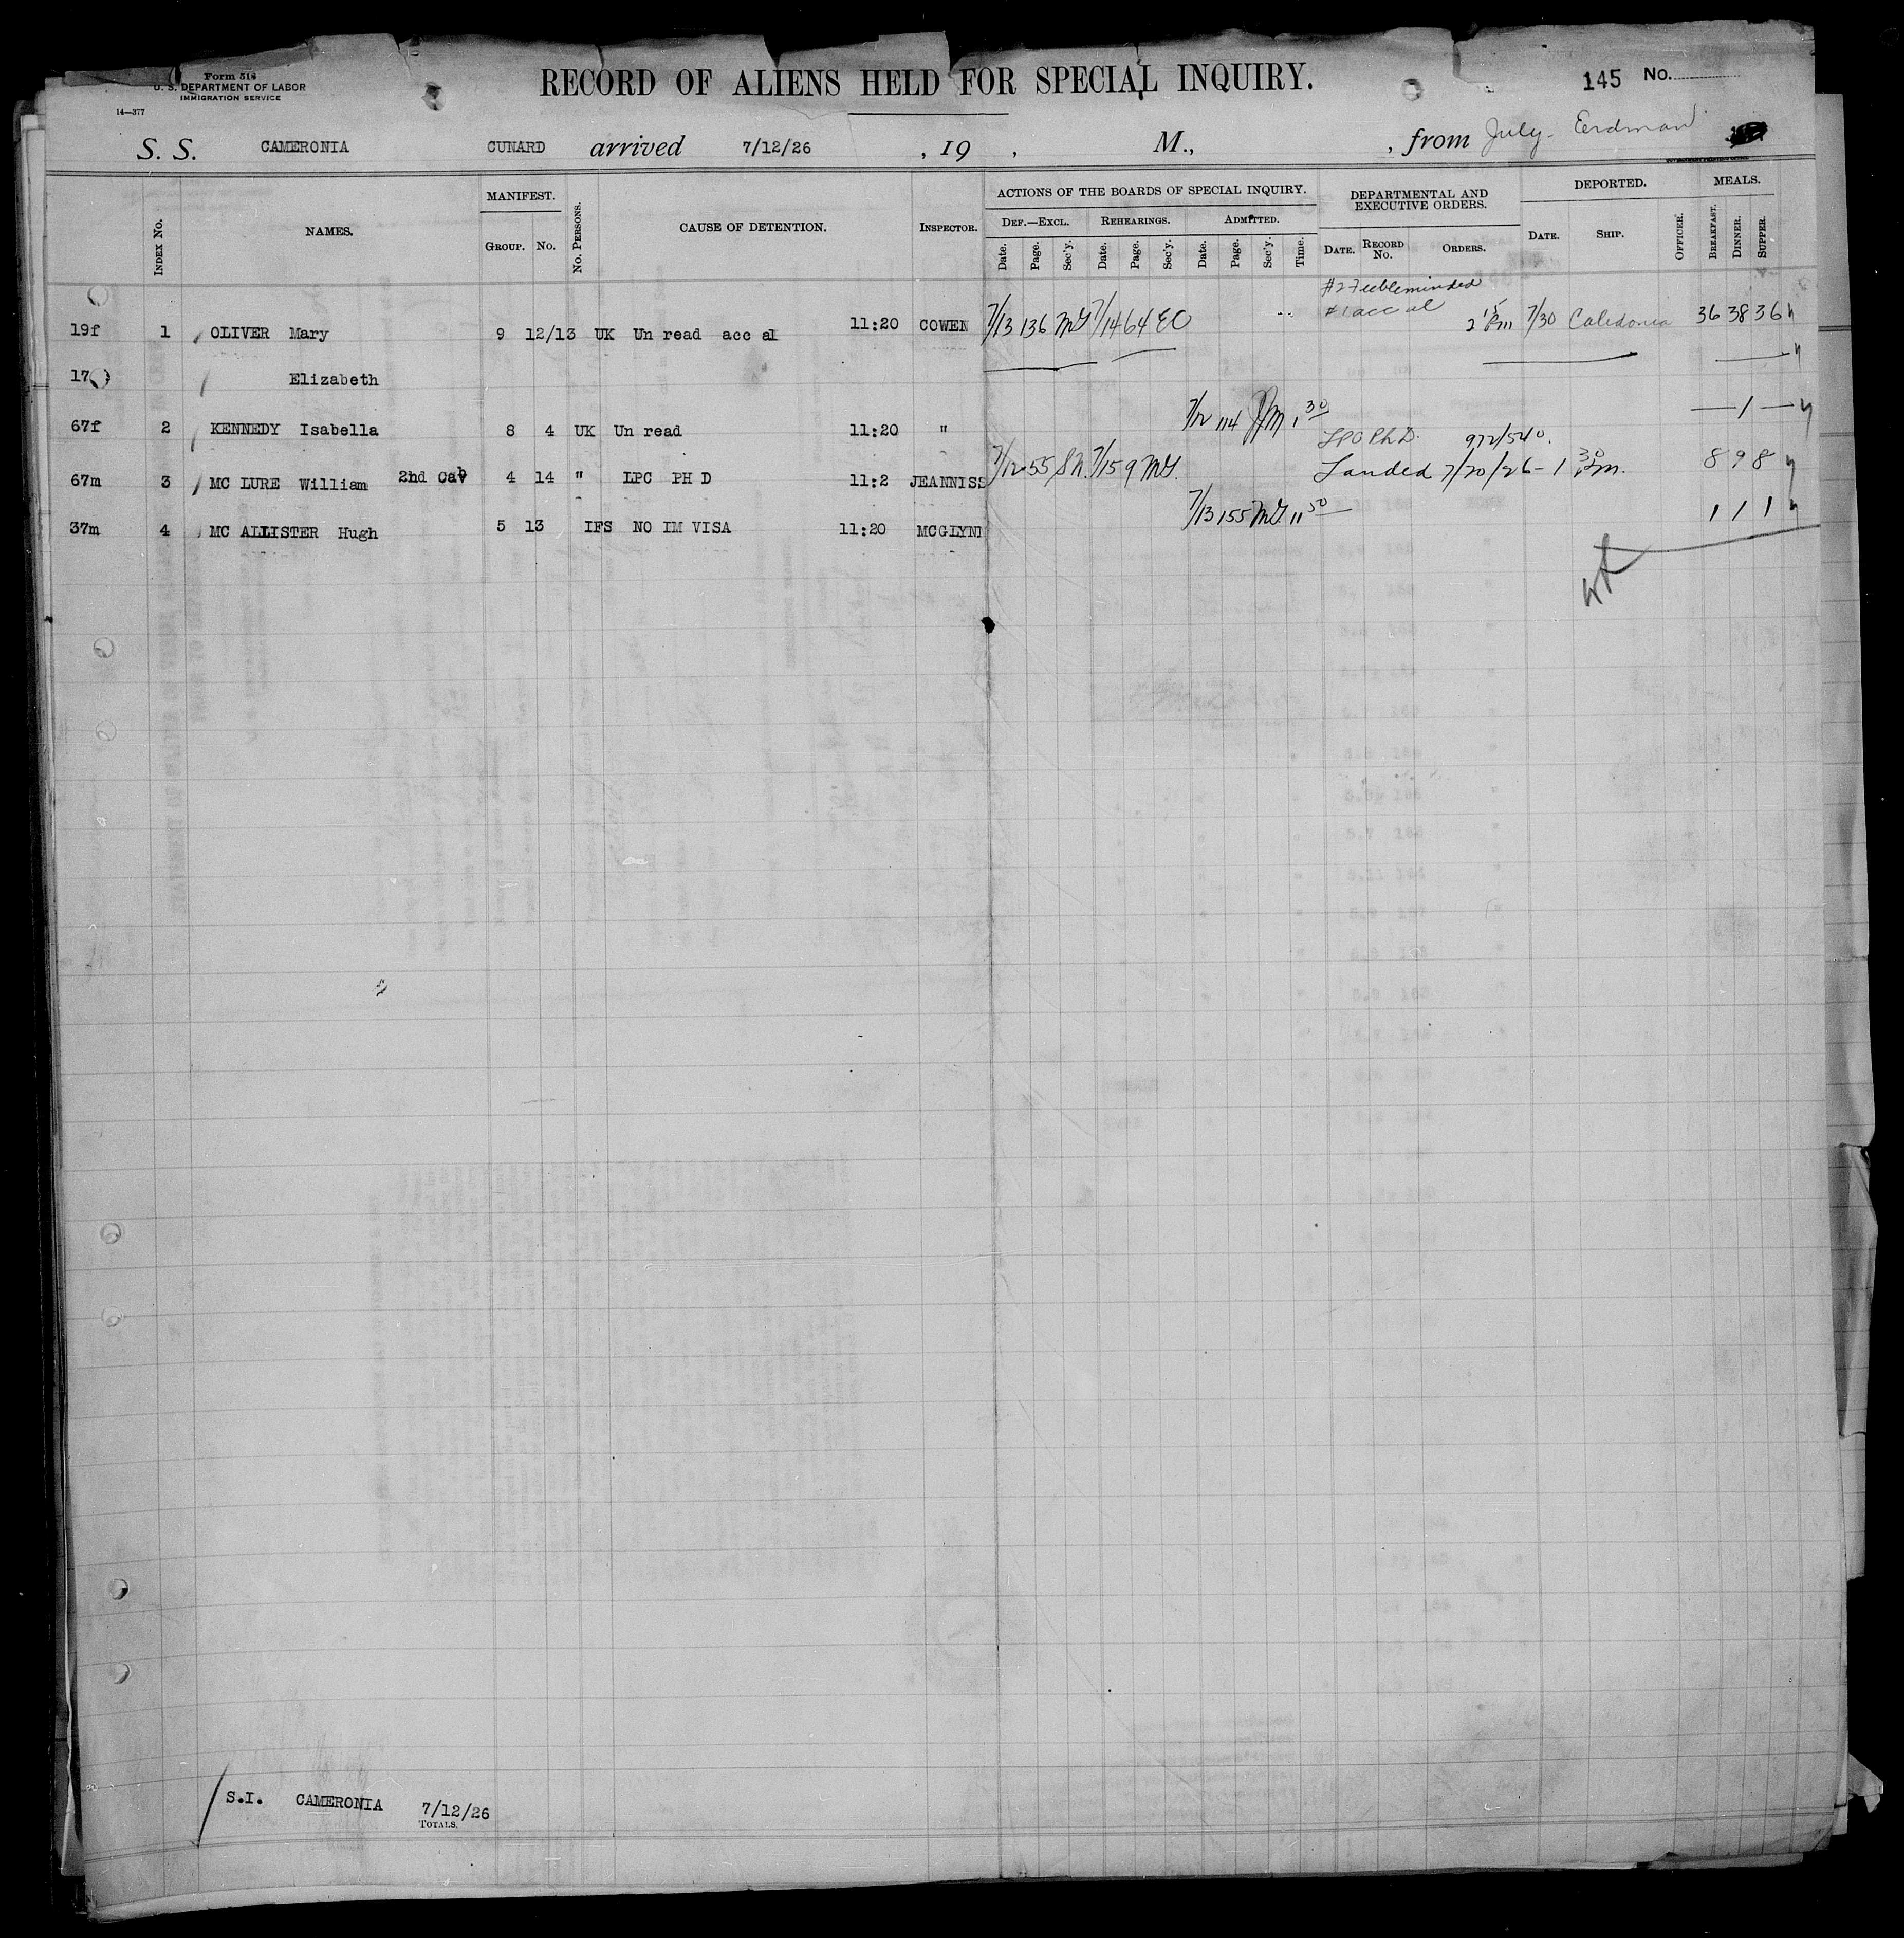 Form 518
U. S. DEPARTMENT OF LABOR
IMMIGRATION SERVICE
14—377
RECORD OF ALIENS HELD FOR SPECIAL INQUIRY.
145 No.
S. S. CAMERONIA CUNARD arrived 7/12/26 , 19 , M., , from July - Erdman
INDEX No. NAMES. MANIFEST. GROUP. No. No. PERSONS. CAUSE OF DETENTION. INSPECTOR. ACTIONS OF THE BOARDS OF SPECIAL INQUIRY. DEF.—EXCL. Date. Page. Sec'y. REHEARINGS. Date. Page. Sec'y. ADMITTED. Date. Page. Sec'y. Time. DEPARTMENTAL AND EXECUTIVE ORDERS. DATE. RECORD No. ORDERS. DEPORTED. DATE. SHIP. OFFICER. MEALS. BREAKFAST. DINNER. SUPPER.
#2 Feebleminded
#1 acc al
19f 1 OLIVER Mary 9 12/13 UK Un read acc al 11:20 COWEN 7/13 136 MG 7/14 64 EC 2 15 Pm 7/30 Caledonia 36 38 36
17 Elizabeth
67f 2 KENNEDY Isabella 8 4 UK Un read 11:20 " 7/12 114 1 30 — 1 —
LPC Ph D. 972/540.
67m 3 MC LURE William 2nd Cab 4 14 " LPC PH D 11:2 JEANNISS 7/12 55 7/15 9 MG. Landed 7/20/26 - 1 30 pm. 8 9 8
37m 4 MC ALLISTER Hugh 5 13 IFS NO IM VISA 11:20 MCGLYNN 7/13 155 MG 11 50 1 1 1
S.I. CAMERONIA 7/12/26
TOTALS.